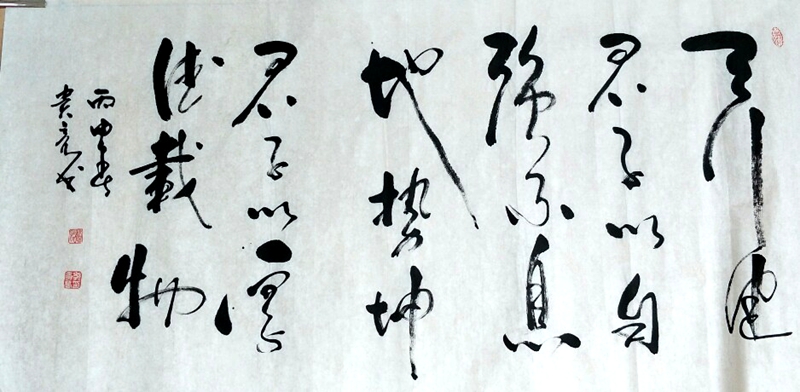 天行健
君子以自
强不息
地势坤
君子以厚
德载物
丙申春
贵亮书